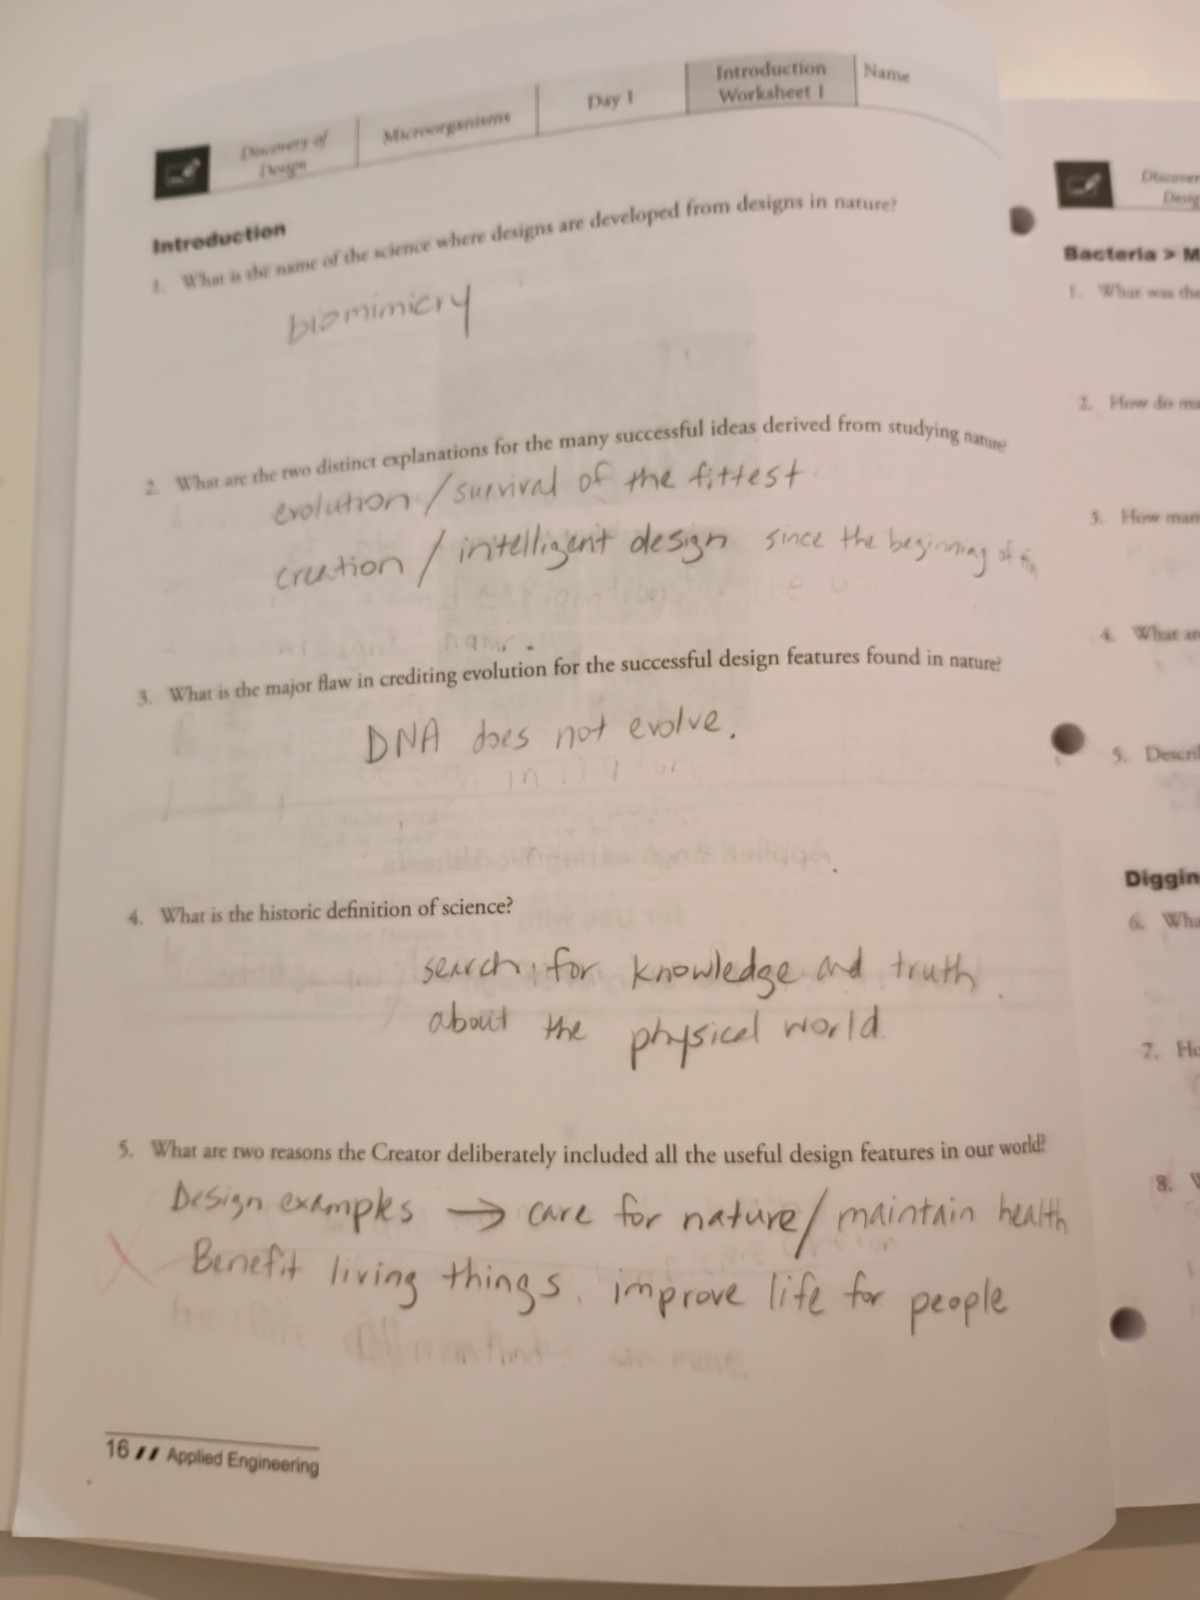 Discovery of Design
Microorganisms
Day 1
Introduction
Worksheet 1
Name
Introduction
1. What is the name of the science where designs are developed from designs in nature?
biomimicry
2. What are the two distinct explanations for the many successful ideas derived from studying nature?
evolution / survival of the fittest
creation / intelligent design since the beginning of
3. What is the major flaw in crediting evolution for the successful design features found in nature?
DNA does not evolve.
4. What is the historic definition of science?
search for knowledge and truth
about the physical world.
5. What are two reasons the Creator deliberately included all the useful design features in our world?
Design examples → care for nature / maintain health
X Benefit living things. improve life for people
16 // Applied Engineering
Discover
Desig
Bacteria > M
1. What was the
2. How do ma
3. How man
4. What
5. Descri
Diggin
6. Wha
7. Ho
8.